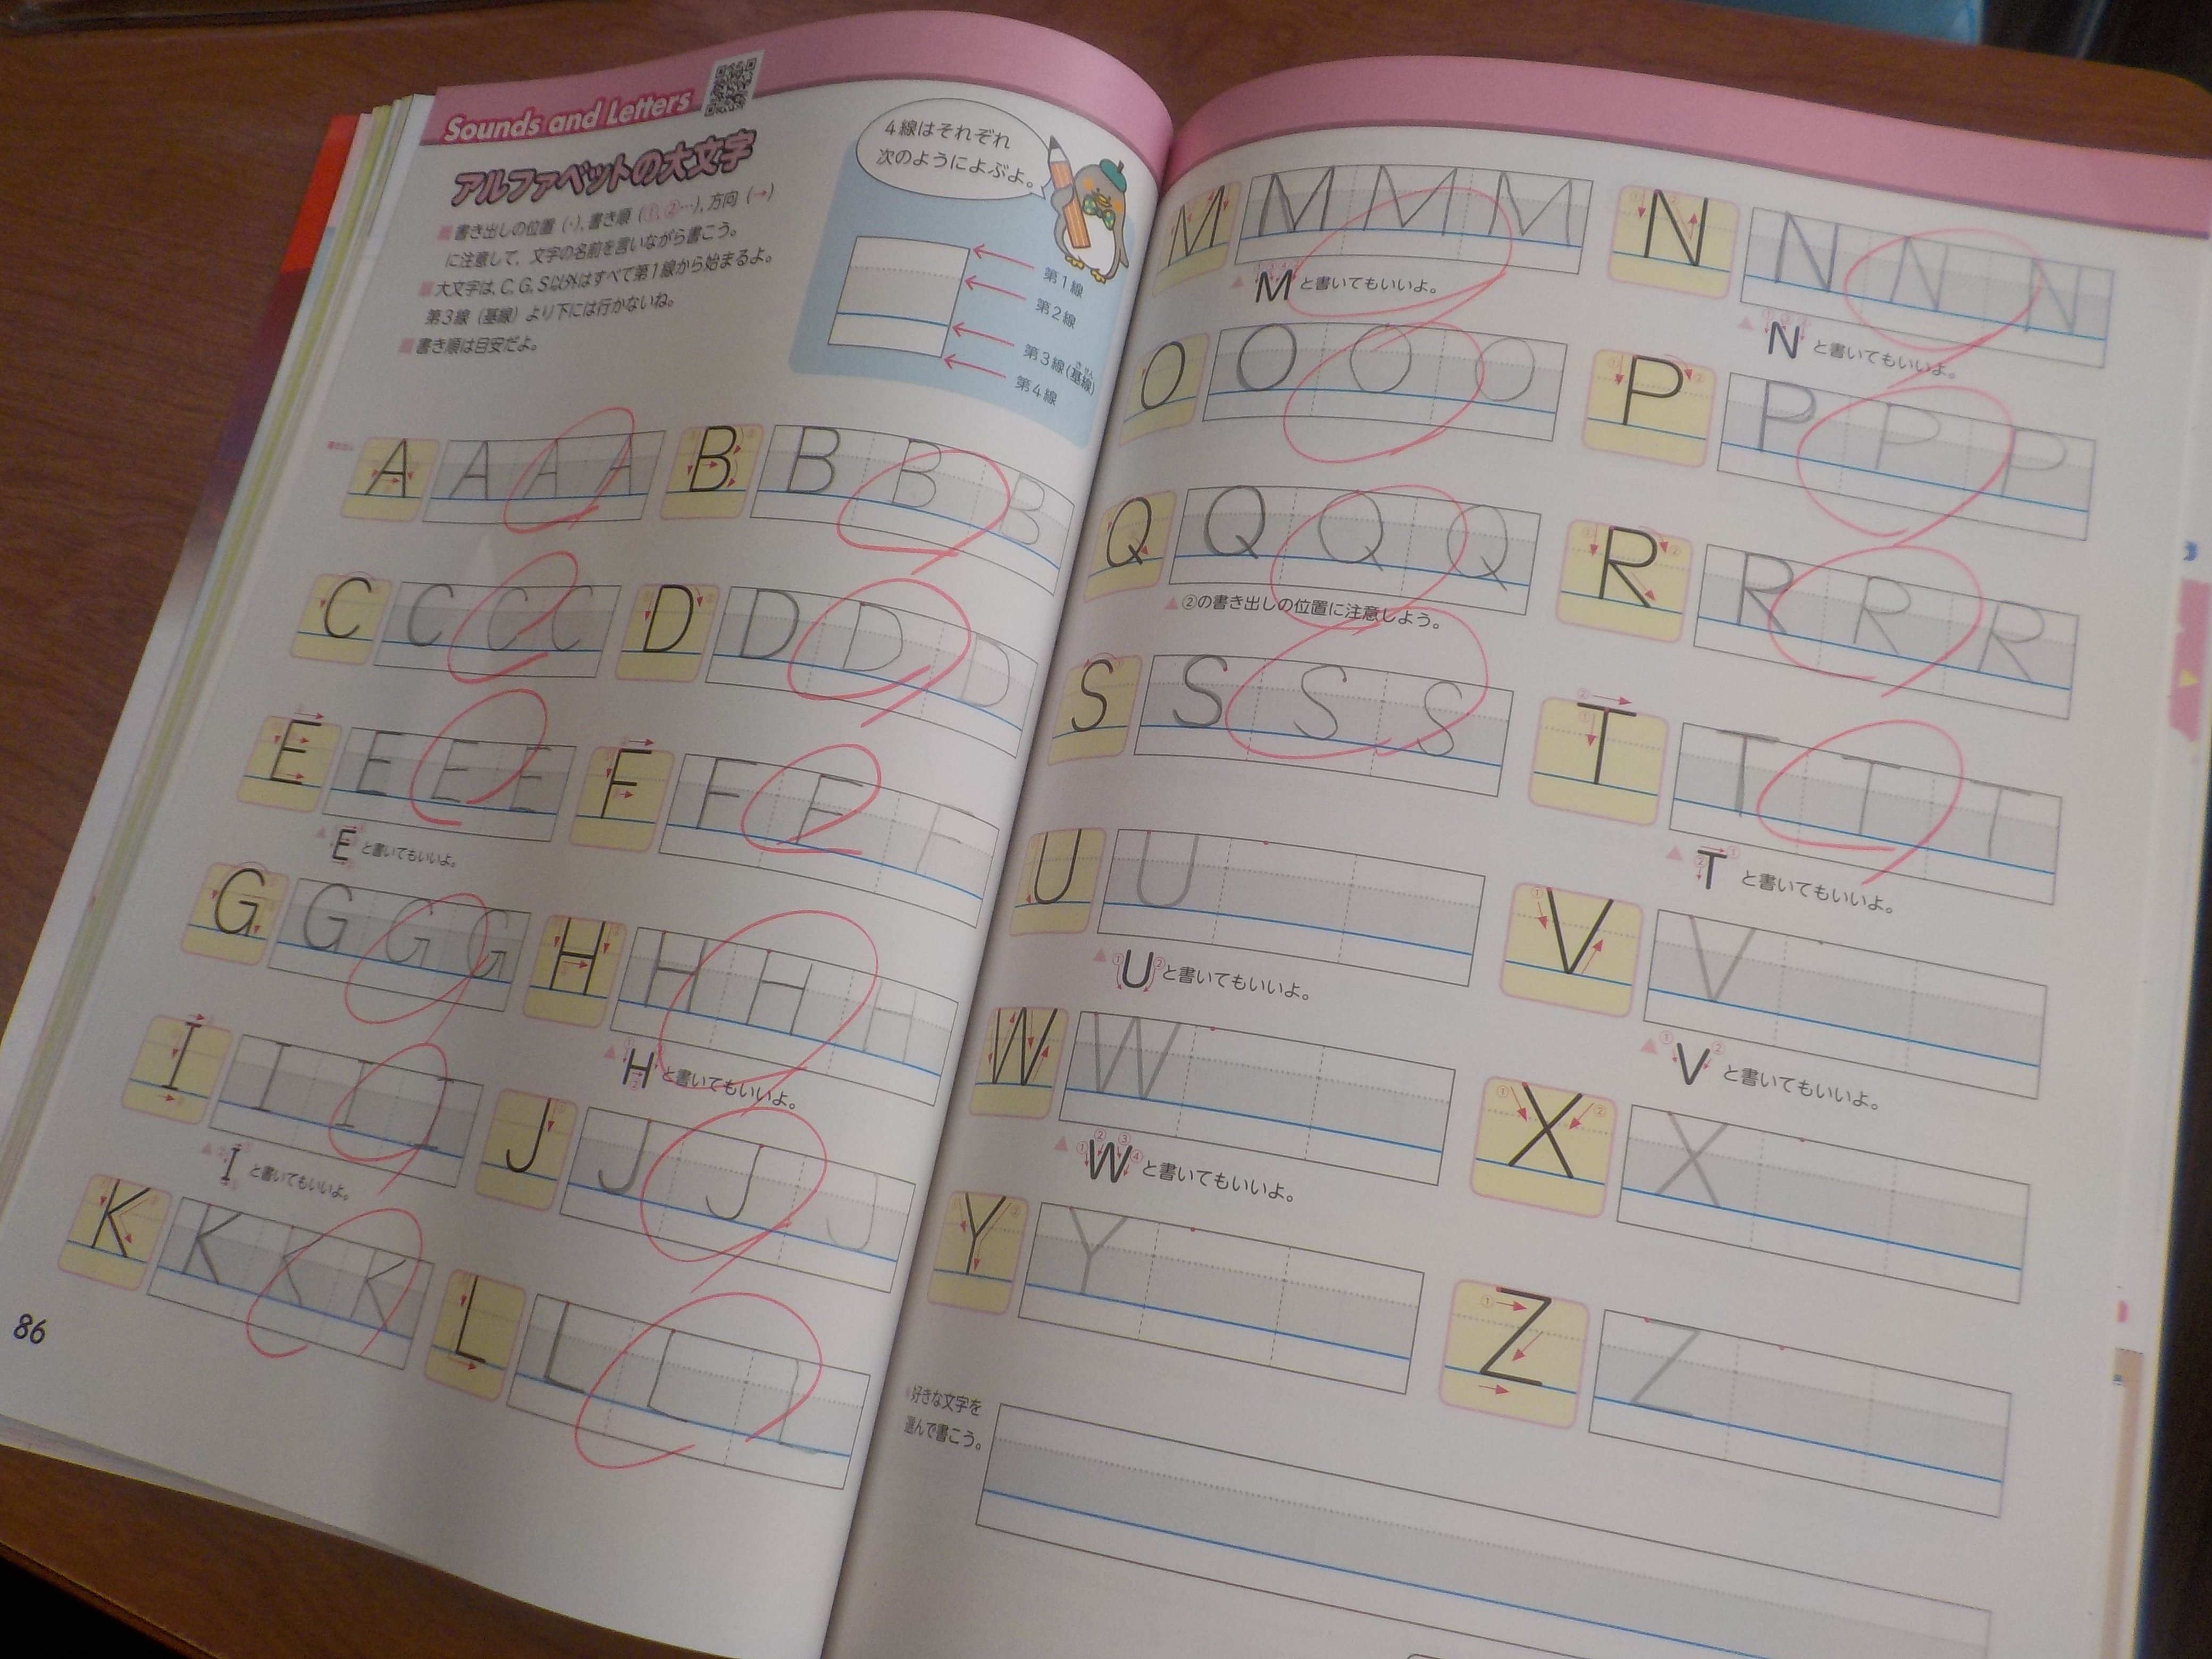 Sounds and Letters
アルファベットの大文字
■書き出しの位置（・），書き順（①，②…），方向（→）
に注意して，文字の名前を言いながら書こう。
■大文字は，C, G, S以外はすべて第1線から始まるよ。
第3線（基線）より下には行かないね。
■書き順は目安だよ。
4線はそれぞれ
次のようによぶよ。
第1線
第2線
第3線(基線)
第4線
A A A A
B B B B
C C C C
D D D D
E E E E
F F F F
▲E と書いてもいいよ。
G G G G
H H H H
▲H と書いてもいいよ。
I I I I
J J J J
▲I と書いてもいいよ。
K K K K
L L L L
86
M M M M
N N N N
▲M と書いてもいいよ。
▲N と書いてもいいよ。
O O O O
P P P P
Q Q Q Q
R R R R
▲②の書き出しの位置に注意しよう。
S S S S
T T T T
▲T と書いてもいいよ。
U U
V V
▲U と書いてもいいよ。
▲V と書いてもいいよ。
W W
X X
▲W と書いてもいいよ。
Y Y
Z Z
好きな文字を
選んで書こう。